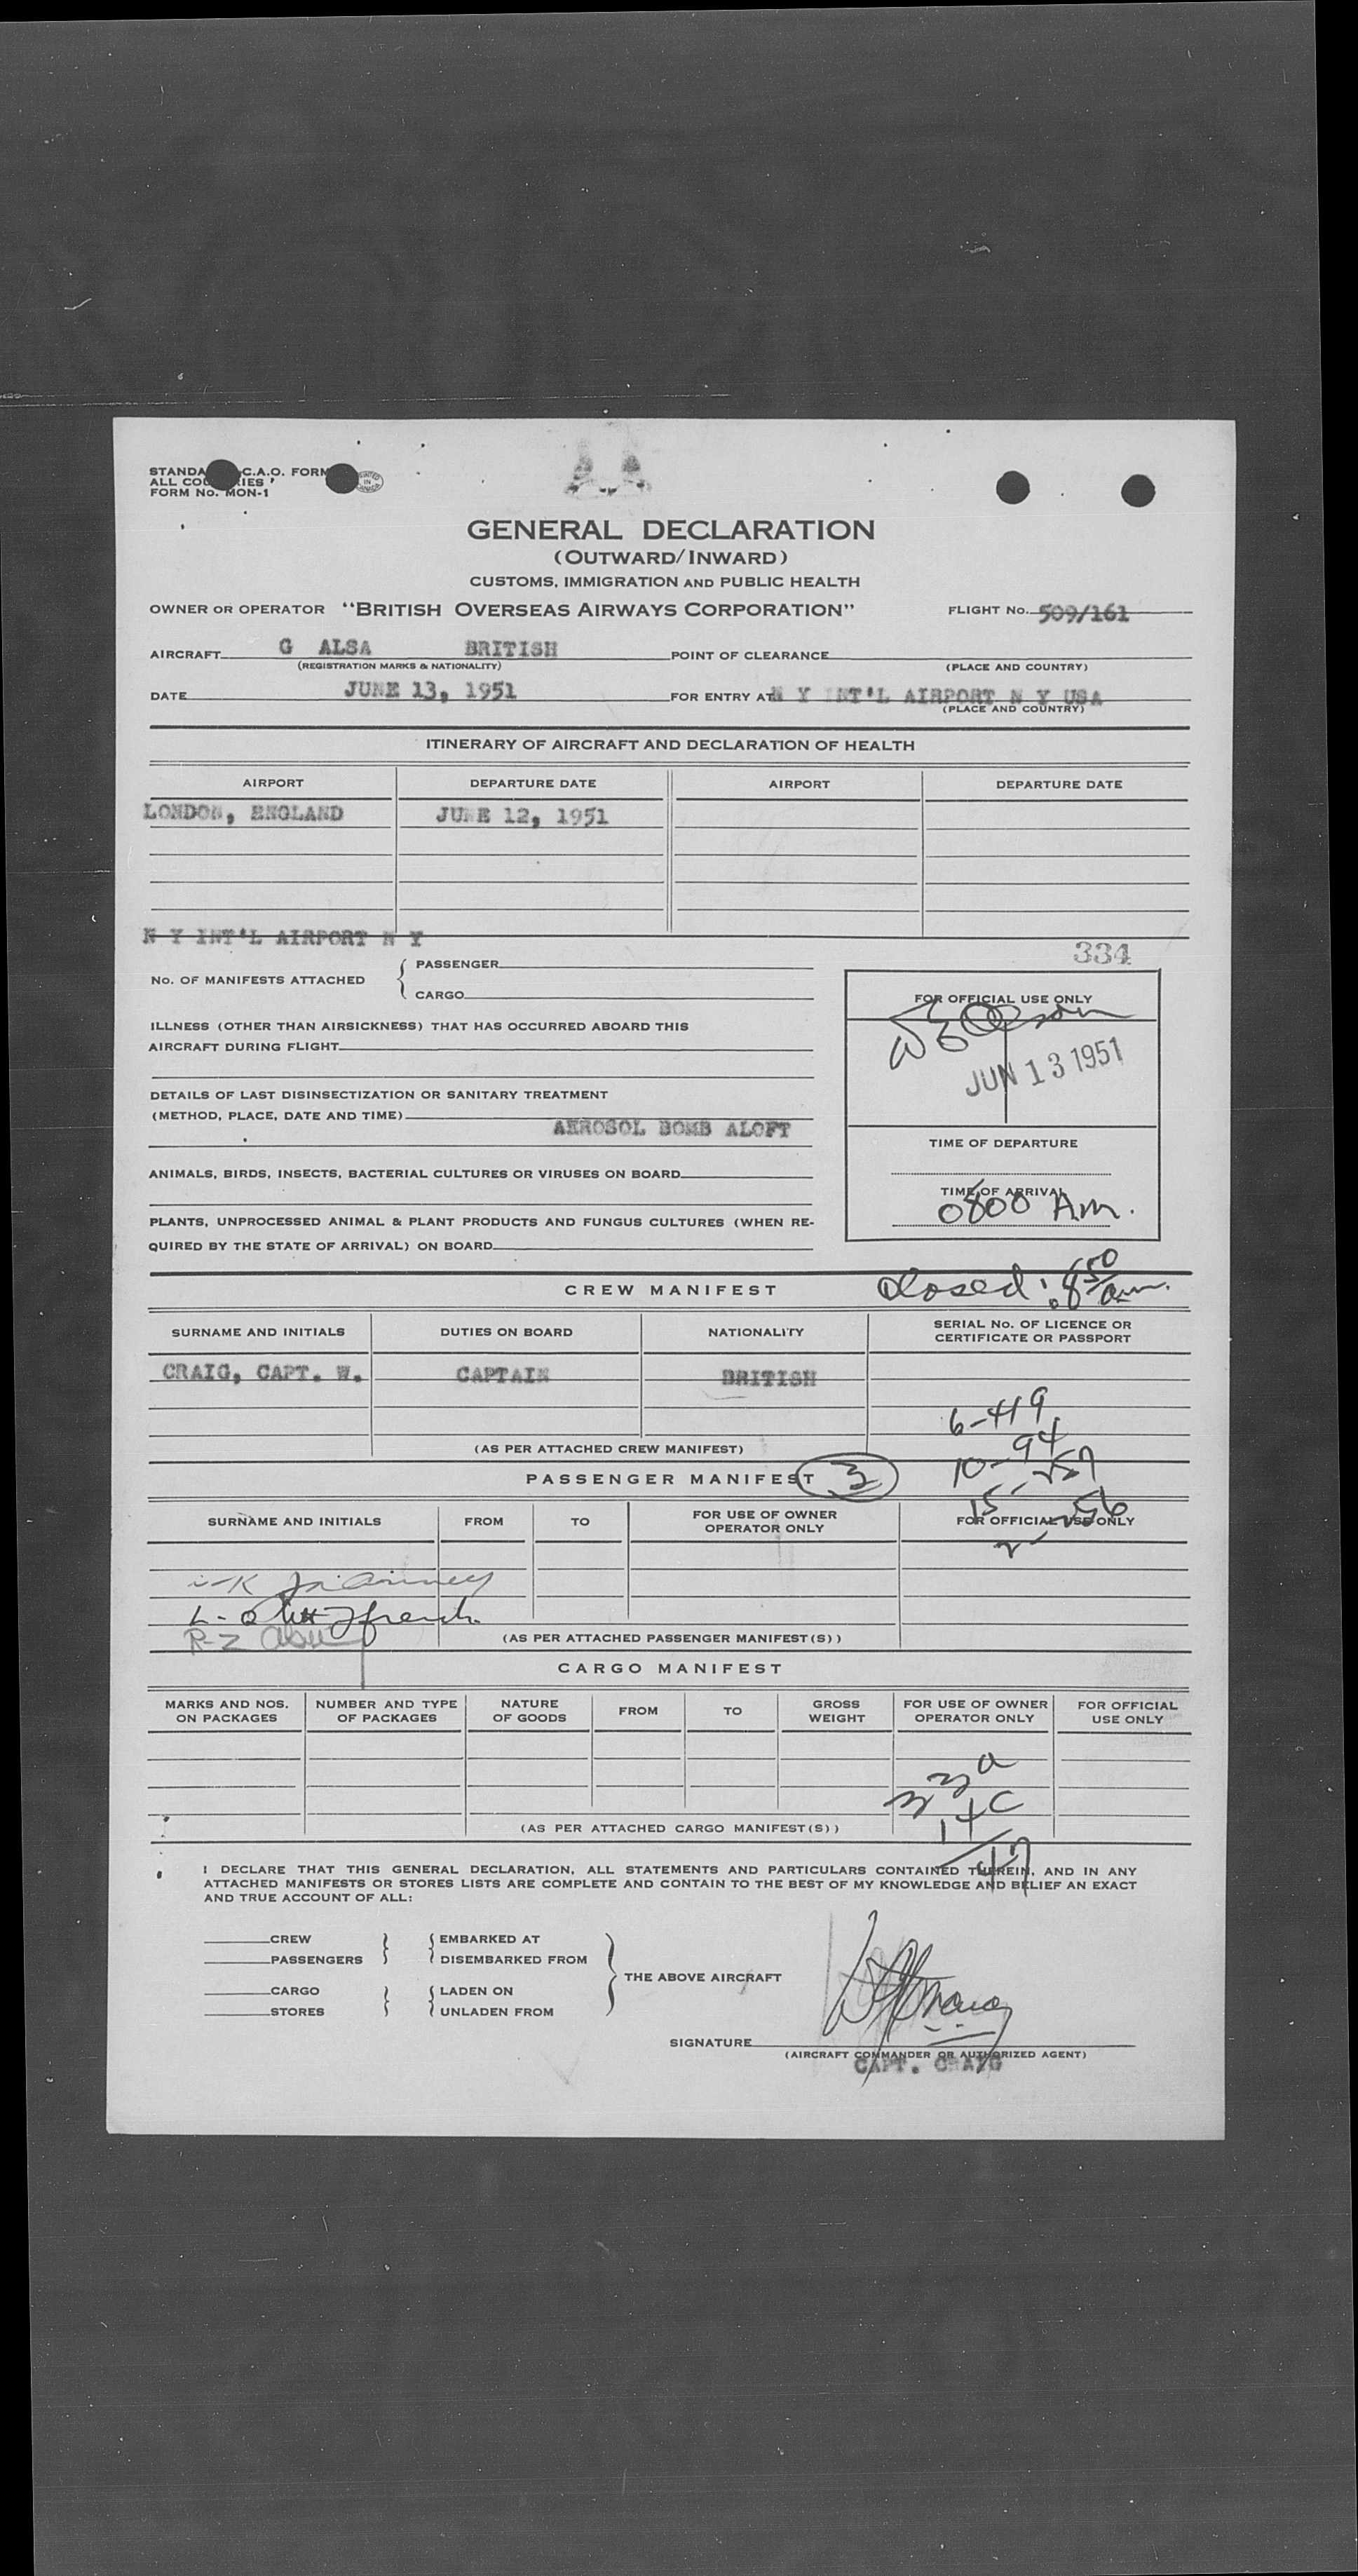 STANDA C.A.O. FORM
ALL COU RIES
FORM No. MON-1
PRINTED IN CANADA
GENERAL DECLARATION
(OUTWARD/INWARD)
CUSTOMS, IMMIGRATION AND PUBLIC HEALTH
OWNER OR OPERATOR "BRITISH OVERSEAS AIRWAYS CORPORATION" FLIGHT No. 509/161
AIRCRAFT G ALSA BRITISH POINT OF CLEARANCE
(REGISTRATION MARKS & NATIONALITY) (PLACE AND COUNTRY)
DATE JUNE 13, 1951 FOR ENTRY AT N Y INT'L AIRPORT N Y USA
(PLACE AND COUNTRY)
ITINERARY OF AIRCRAFT AND DECLARATION OF HEALTH
AIRPORT DEPARTURE DATE AIRPORT DEPARTURE DATE
LONDON, ENGLAND JUNE 12, 1951
N Y INT'L AIRPORT N Y
334
No. OF MANIFESTS ATTACHED { PASSENGER
CARGO
FOR OFFICIAL USE ONLY
JUN 13 1951
TIME OF DEPARTURE
TIME OF ARRIVAL
0800 Am.
ILLNESS (OTHER THAN AIRSICKNESS) THAT HAS OCCURRED ABOARD THIS
AIRCRAFT DURING FLIGHT
DETAILS OF LAST DISINSECTIZATION OR SANITARY TREATMENT
(METHOD, PLACE, DATE AND TIME)
AEROSOL BOMB ALOFT
ANIMALS, BIRDS, INSECTS, BACTERIAL CULTURES OR VIRUSES ON BOARD
PLANTS, UNPROCESSED ANIMAL & PLANT PRODUCTS AND FUNGUS CULTURES (WHEN RE-
QUIRED BY THE STATE OF ARRIVAL) ON BOARD
CREW MANIFEST Closed: 8 50 am.
SURNAME AND INITIALS DUTIES ON BOARD NATIONALITY SERIAL No. OF LICENCE OR
CERTIFICATE OR PASSPORT
CRAIG, CAPT. W. CAPTAIN BRITISH
6-419
10-94
(AS PER ATTACHED CREW MANIFEST)
PASSENGER MANIFEST 3
15-257
2-256
SURNAME AND INITIALS FROM TO FOR USE OF OWNER
OPERATOR ONLY FOR OFFICIAL USE ONLY
R-Z
(AS PER ATTACHED PASSENGER MANIFEST(S))
CARGO MANIFEST
MARKS AND NOS.
ON PACKAGES NUMBER AND TYPE
OF PACKAGES NATURE
OF GOODS FROM TO GROSS
WEIGHT FOR USE OF OWNER
OPERATOR ONLY FOR OFFICIAL
USE ONLY
33 a
14 C
47
(AS PER ATTACHED CARGO MANIFEST(S))
I DECLARE THAT THIS GENERAL DECLARATION, ALL STATEMENTS AND PARTICULARS CONTAINED THEREIN, AND IN ANY
ATTACHED MANIFESTS OR STORES LISTS ARE COMPLETE AND CONTAIN TO THE BEST OF MY KNOWLEDGE AND BELIEF AN EXACT
AND TRUE ACCOUNT OF ALL:
CREW EMBARKED AT
PASSENGERS DISEMBARKED FROM
THE ABOVE AIRCRAFT
CARGO LADEN ON
STORES UNLADEN FROM
SIGNATURE
(AIRCRAFT COMMANDER OR AUTHORIZED AGENT)
CAPT. CRAIG